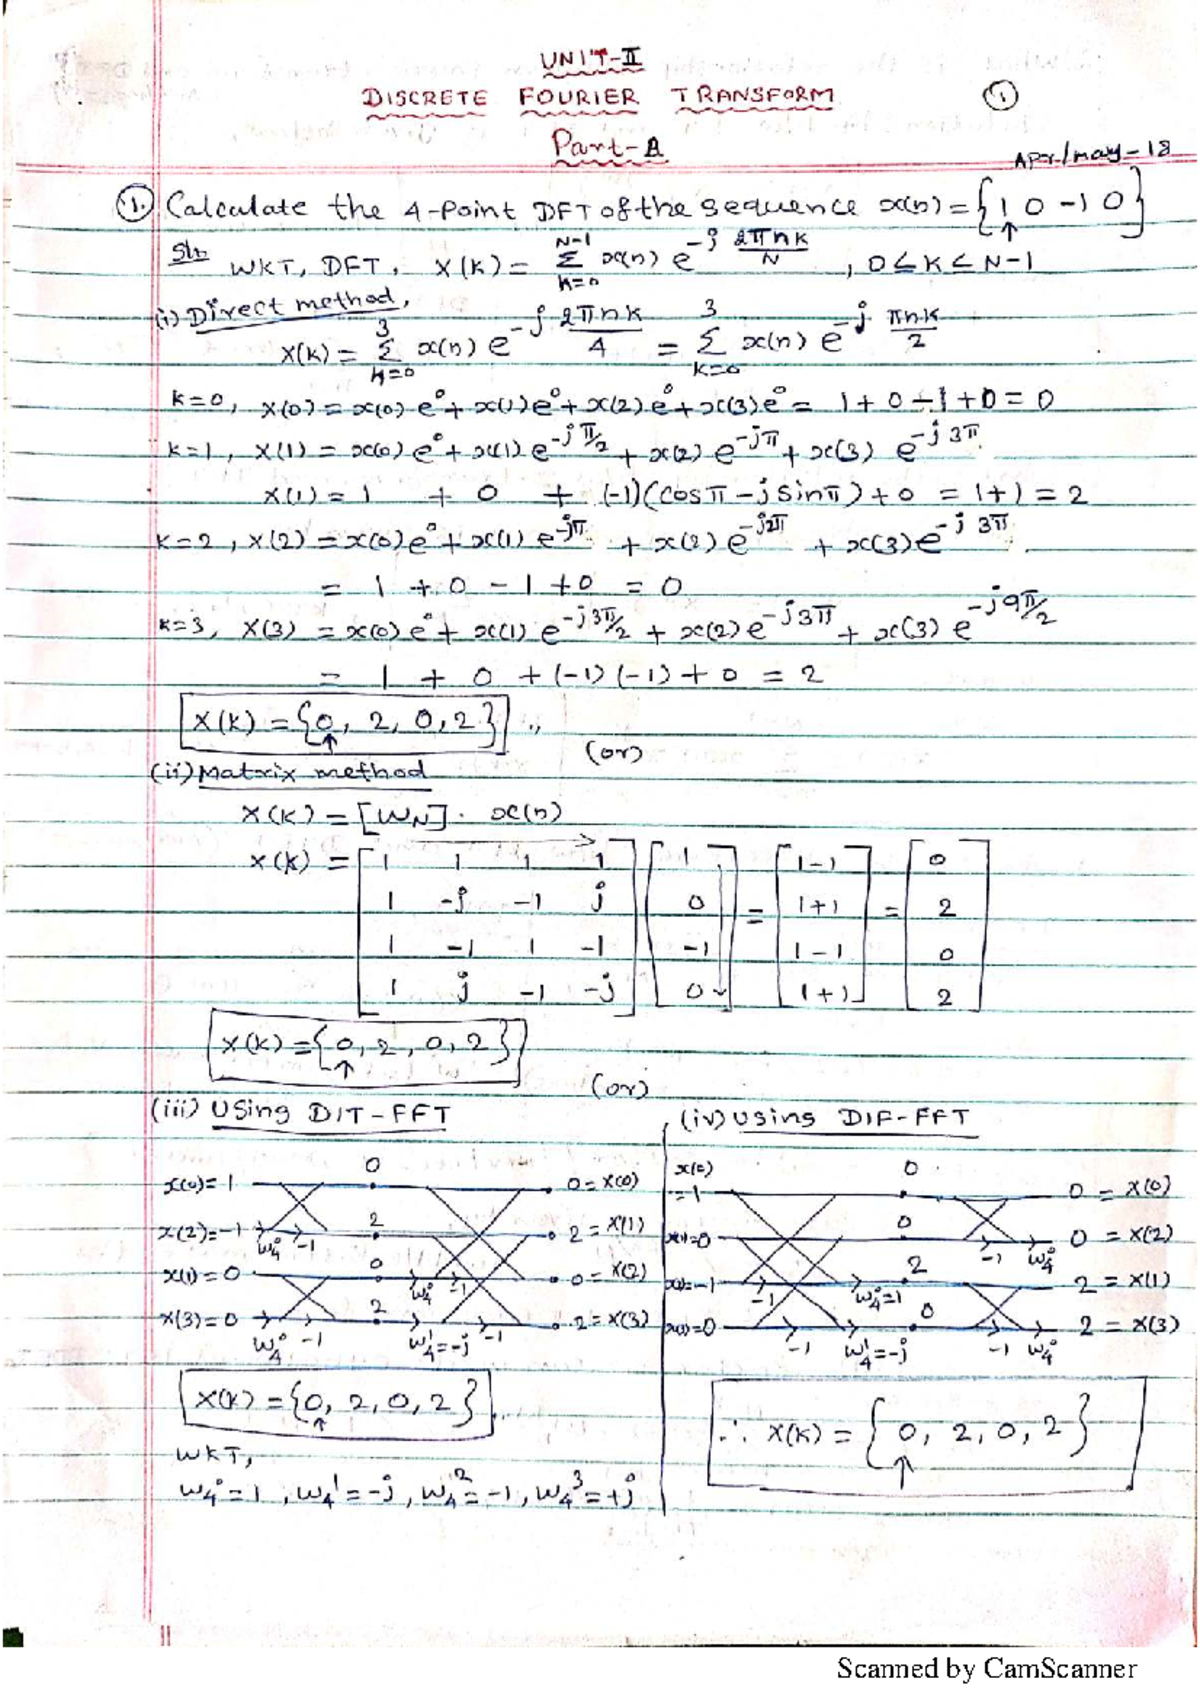 UNIT-II
DISCRETE FOURIER TRANSFORM
①
Part-A
Apr/may-18
①. Calculate the 4-Point DFT of the sequence x(n)={1 0 -1 0}
↑
Sln WKT, DFT, X(k) = N-1 Σ k=0 x(n) e^-j 2πnk/N , 0≤k≤N-1
(i) Direct method,
X(k) = 3 Σ n=0 x(n) e^-j 2πnk/4 = 3 Σ k=0 x(n) e^-j πnk/2
k=0, X(0) = x(0) e^0 + x(1) e^0 + x(2) e^0 + x(3) e^0 = 1+0-1+0 = 0
k=1, X(1) = x(0) e^0 + x(1) e^-jπ/2 + x(2) e^-jπ + x(3) e^-j3π
X(1) = 1 + 0 + (-1)(cosπ-jsinπ)+0 = 1+1 = 2
k=2, X(2) = x(0) e^0 + x(1) e^-jπ + x(2) e^-j2π + x(3) e^-j3π
= 1 + 0 - 1 + 0 = 0
k=3, X(3) = x(0) e^0 + x(1) e^-j3π/2 + x(2) e^-j3π + x(3) e^-j9π/2
= 1 + 0 + (-1)(-1) + 0 = 2
X(k) = {0, 2, 0, 2}
↑
(or)
(ii) Matrix method
X(k) = [WN] . x(n)
X(k) = [1 1 1 1] [1] [1-1] [0]
1 -j -1 j 0 = 1+1 = 2
1 -1 1 -1 -1 1-1 0
1 j -1 -j 0 1+1 2
X(k) = {0, 2, 0, 2}
↑
(or)
(iii) Using DIT-FFT
x(0)=1 0 0=X(0)
x(2)=-1 W4^0 -1 2 2=X(1)
x(1)=0 0 W4^0 -1 0=X(2)
x(3)=0 W4^0 -1 2 W4^1=-j -1 2=X(3)
X(k) = {0, 2, 0, 2}
↑
WKT,
W4^0=1, W4^1=-j, W4^2=-1, W4^3=+j
(iv) Using DIF-FFT
x(0)
=1 0 0 = X(0)
x(1)=0 0 -1 W4^0 0 = X(2)
-1 -1 W4^0=1 2 2 = X(1)
=0 -1 W4^1=-j 0 -1 W4^0 2 = X(3)
∴ X(k) = {0, 2, 0, 2}
↑
Scanned by CamScanner